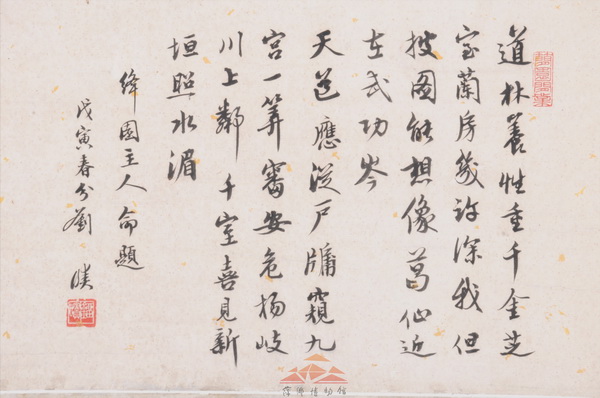 道林養性重千金芝
室蘭房幾許深我但
披圖能想像葛仙近
在武功岑
天道應從戶牖窺九
宮一算審安危楊岐
川上鄰千室喜見新
垣照水湄
絳園主人命題
戊寅春分劉